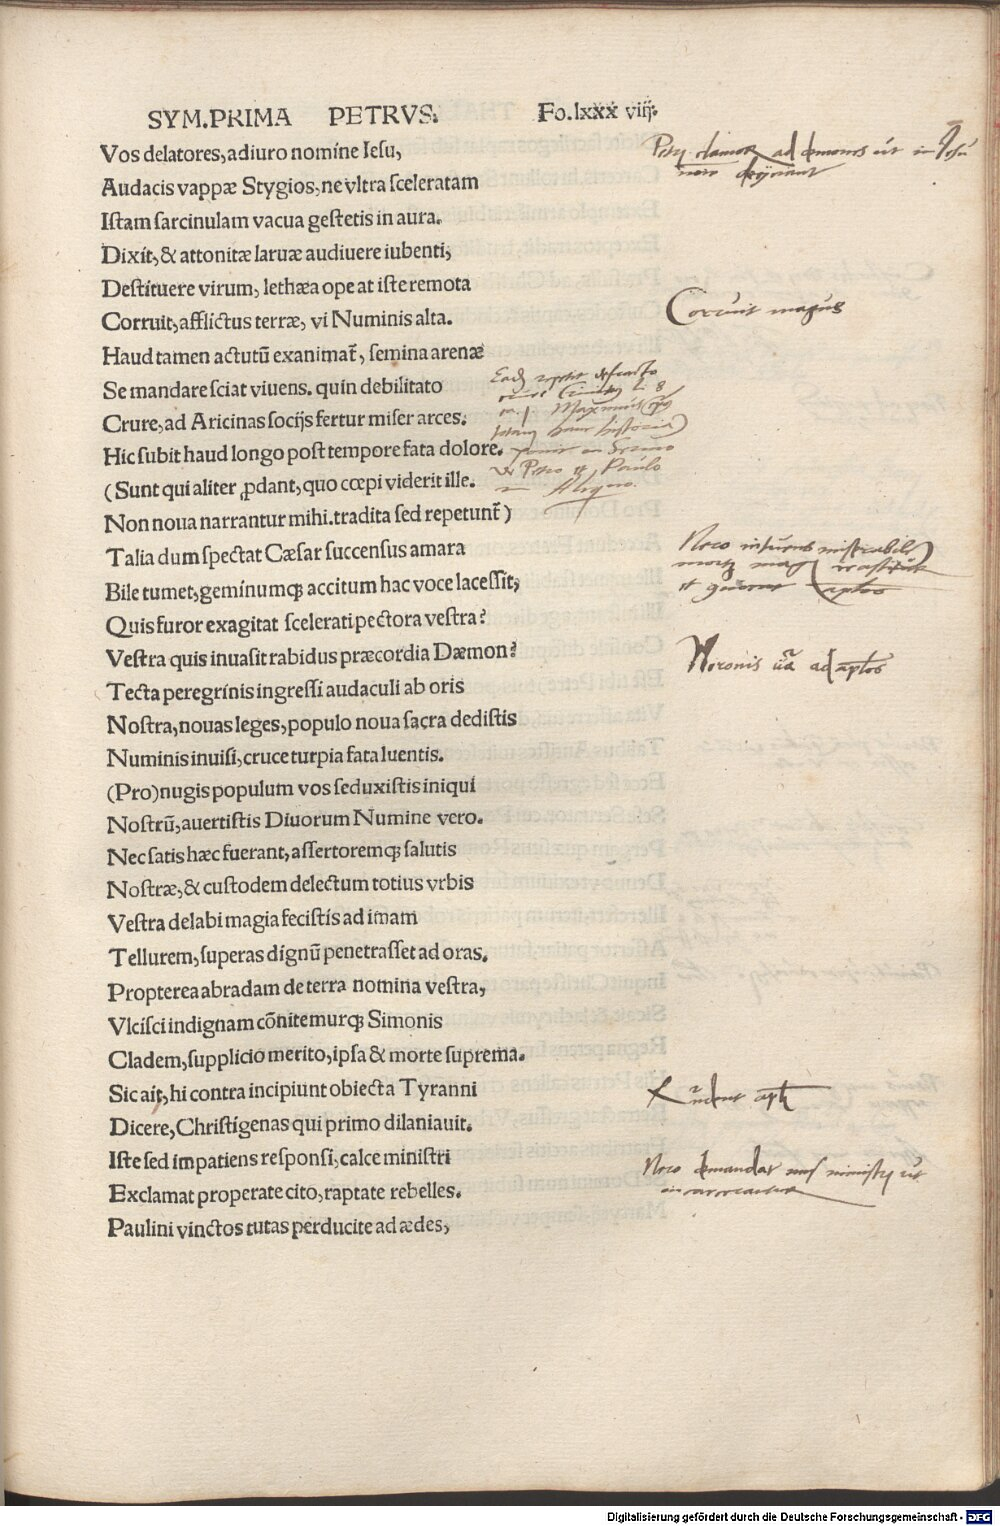 SYM.PRIMA PETRVS. Fo.lxxx viij.
Vos delatores, adiuro nomine Iesu,
Audacis vappæ Stygios, ne vltra sceleratam
Istam sarcinulam vacua gestetis in aura.
Dixit, & attonitæ laruæ audiuere iubenti,
Destituere virum, lethæa ope at iste remota
Corruit, afflictus terræ, vi Numinis alta.
Corruit magus
Haud tamen actutũ exanimat̃, semina arenæ
Se mandare sciat viuens. quin debilitato
Crure, ad Aricinas socijs fertur miser arces.
Hic subit haud longo post tempore fata dolore.
(Sunt qui aliter ꝓdant, quo cœpi viderit ille.
Non noua narrantur mihi. tradita sed repetunt̃)
Talia dum spectat Cæsar succensus amara
Bile tumet, geminumqꝫ accitum hac voce lacessit,
Quis furor exagitat scelerati pectora vestra?
Vestra quis inuasit rabidus præcordia Dæmon?
Neronis ad aplos
Tecta peregrinis ingressi audaculi ab oris
Nostra, nouas leges, populo noua sacra dedistis
Numinis inuisi, cruce turpia fata luentis.
(Pro) nugis populum vos seduxistis iniqui
Nostrũ, auertistis Diuorum Numine vero.
Nec satis hæc fuerant, assertoremqꝫ salutis
Nostræ, & custodem delectum totius vrbis
Vestra delabi magia fecistis ad imam
Tellurem, superas dignũ penetrasset ad oras.
Propterea abradam de terra nomina vestra,
Vlcisci indignam cõnitemurqꝫ Simonis
Cladem, supplicio merito, ipsa & morte suprema.
Sic ait, hi contra incipiunt obiecta Tyranni
Dicere, Christigenas qui primo dilaniauit.
Iste sed impatiens responsi, calce ministri
Nero demandat
Exclamat properate cito, raptate rebelles.
Paulini vinctos tutas perducite ad ædes,
Digitalisierung gefördert durch die Deutsche Forschungsgemeinschaft - DFG